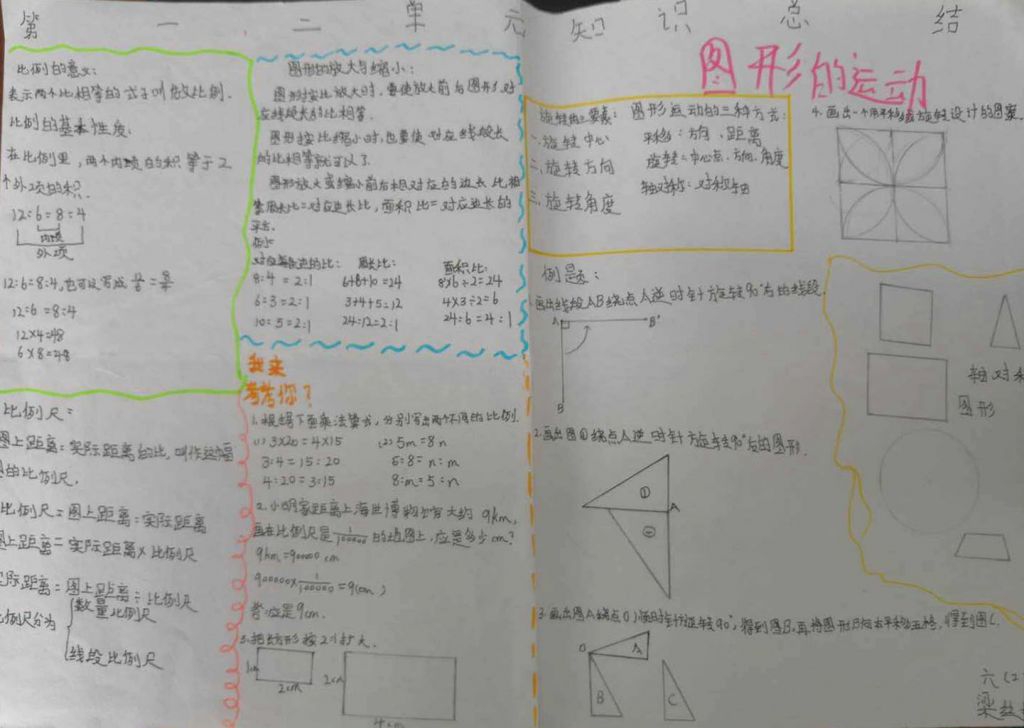 第一二单元知识总结
比例的意义:
表示两个比相等的式子叫做比例.
比例的基本性质:
在比例里,两个内项的积等于2
个外项的积.
12:6=8:4
内项
外项
12:6=8:4,也可以写成
12:6=8:4
12×4=48
6×8=48
比例尺:
图上距离:实际距离的比,叫作这幅
图的比例尺.
比例尺=图上距离:实际距离
图上距离=实际距离×比例尺
实际距离=图上距离÷比例尺
比例尺分为
数量比例尺
线段比例尺
图形的放大与缩小:
图形按比放大时,要使放大前后图形对
应线段长的比相等.
图形按比缩小时,也要使对应线段长
的比相等就可以了
图形放大或缩小前后相对应的边长比相
等周长比=对应边长比,面积比=对应边长的
平方.
例:
对应边的比: 周长比: 面积比:
8:4=2:1 6+8+10=24 8×6÷2=24
6:3=2:1 3+4+5=12 4×3÷2=6
10:5=2:1 24:12=2:1 24:6=4:1
我来
考考你?
1.根据下面乘法算式,分别写出两个不同的比例.
(1)3×20=4×15 (2)5m=8n
3:4=15:20 5:8=n:m
4:20=3:15 8:m=5:n
2.小明家距离上海世博物馆大约9km,
画在比例尺是1/100000的地图上,应是多少cm?
9km=900000cm
900000×1/100000=9(cm)
答:应是9cm.
3.把方形按2:1扩大.
1cm
2cm
2cm
4cm
图形的运动
旋转三要素:
一.旋转中心
二.旋转方向
三.旋转角度
图形运动的三种方式:
平移:方向、距离
旋转:中心点、方向、角度
轴对称:对称轴
4.画出一个用平移或旋转设计的图案
例题:
1.画出线段AB绕点A逆时针旋转90°后的线段.
A B'
B
2.画出图①绕点A逆时针旋转90°后的图形.
①
A
②
轴对称
图形
3.画出图A绕点O顺时针旋转90°,得到图B,再将图形B向右平移五格,得到图C.
O A
B C
六(2
梁